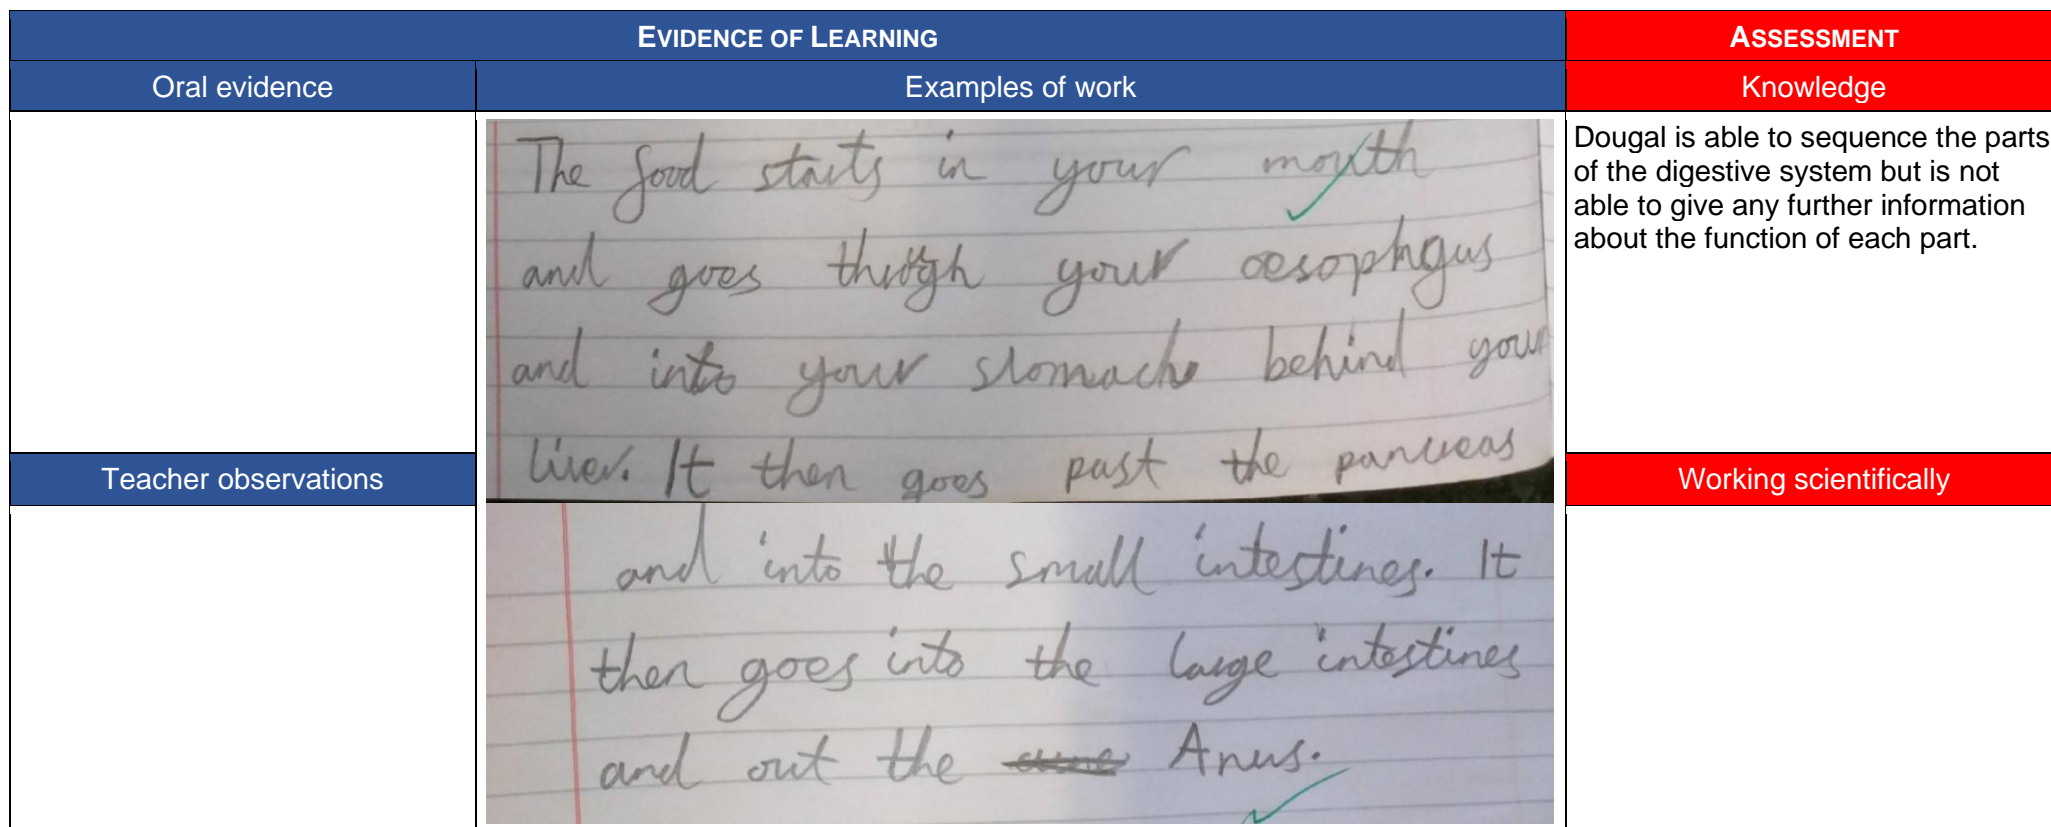 EVIDENCE OF LEARNING
ASSESSMENT
Oral evidence
Examples of work
Knowledge
The food starts in your mouth
and goes through your oesophgus
and into your stomach behind your
liver. It then goes past the pancreas
and into the small intestines. It
then goes into the large intestines
and out the Anus.
Dougal is able to sequence the parts
of the digestive system but is not
able to give any further information
about the function of each part.
Teacher observations
Working scientifically